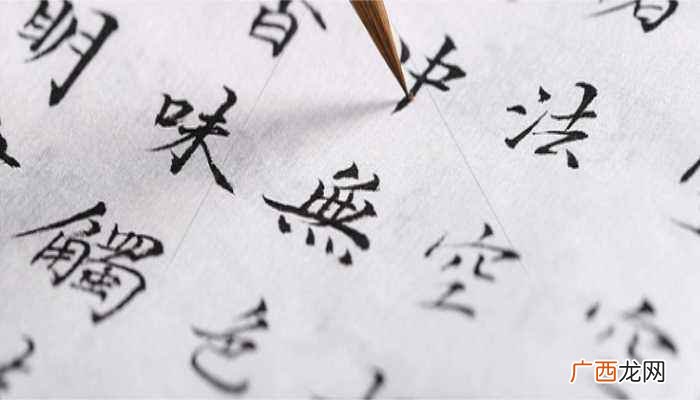 空
法空
中無色
香味觸
明
广西龙网